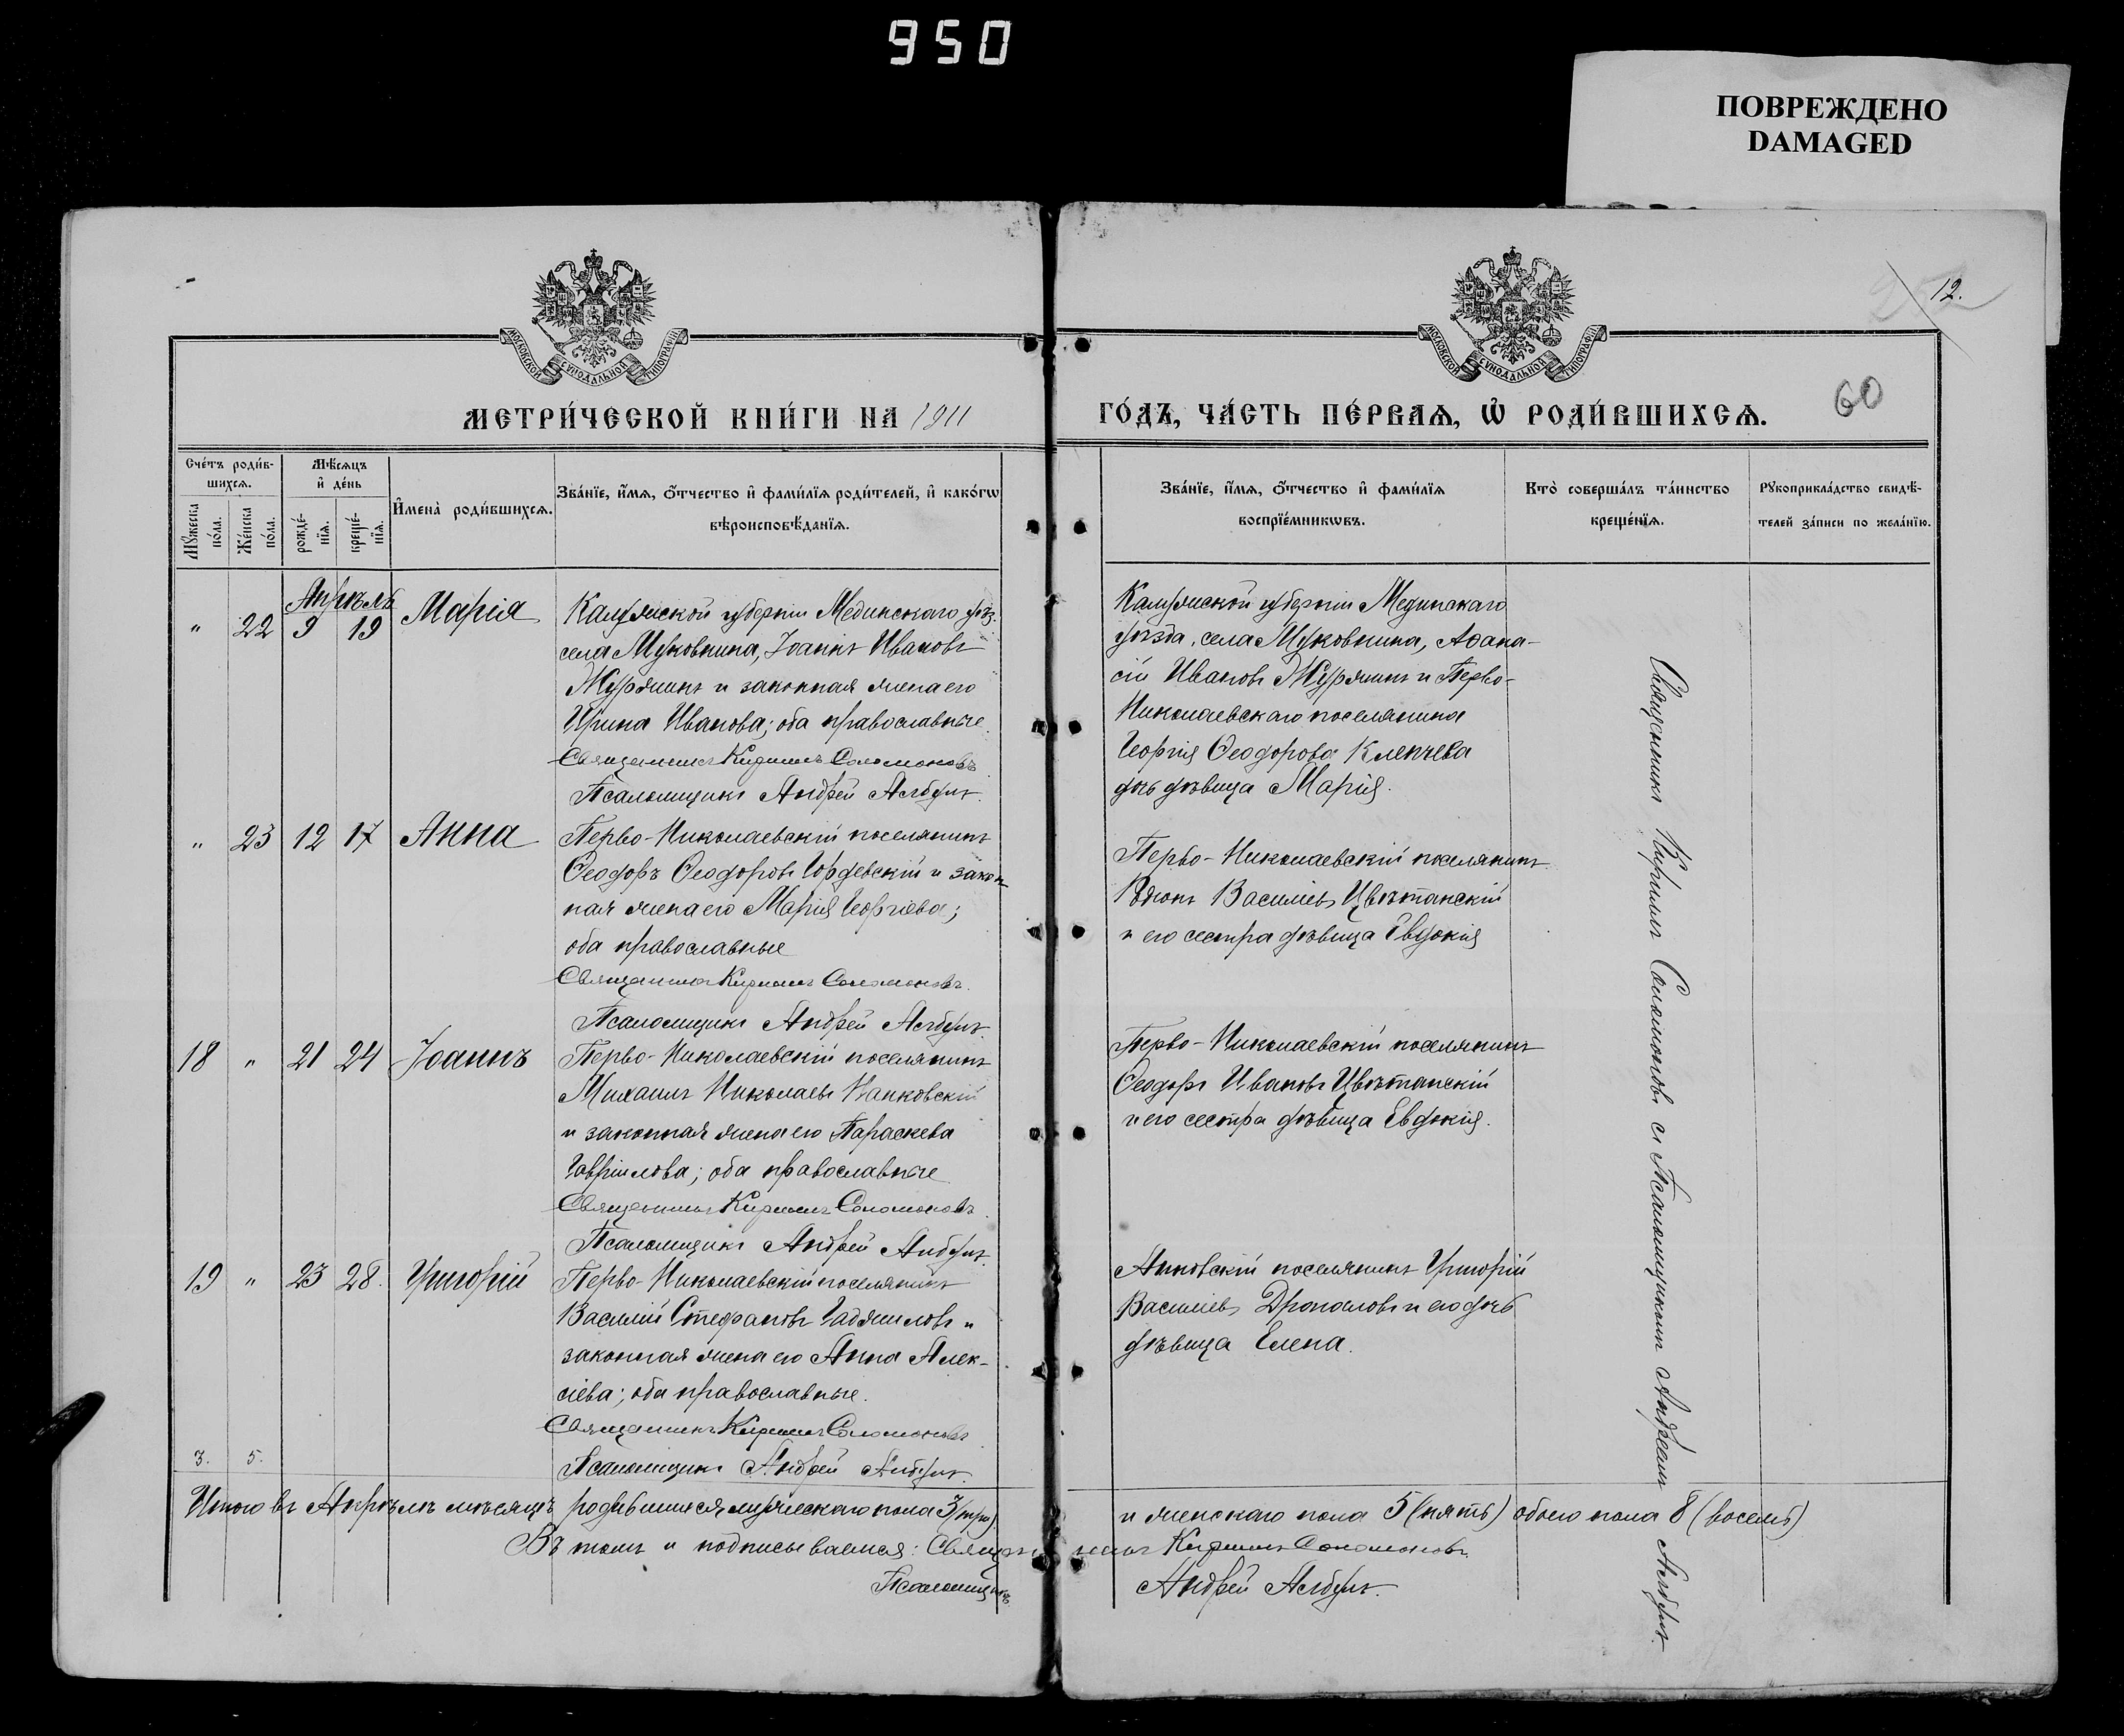 950
ПОВРЕЖДЕНО
DAMAGED
12.
60
МОСКОВСКОЙ СУНОДАЛЬНОЙ ТИПОГРАФІИ
МОСКОВСКОЙ СУНОДАЛЬНОЙ ТИПОГРАФІИ
МЕТРИ́ЧЕСКОЙ КНИ́ГИ НА 1911
ГО́ДЪ, ЧА́СТЬ ПЕ́РВАѦ, Ѡ҆ РОДИ́ВШИХСѦ.
Сче́тъ роди́в-
шихсѧ.
Мꙋ́жеска по́ла.
Же́нска по́ла.
Мѣ́сѧцъ
и҆ де́нь
рожде́-
нїѧ.
креще́-
нїѧ.
И҆мена̀ роди́вшихсѧ.
Зва́нїе, и҆́мѧ, о҆́тчество и҆ фами́лїѧ роди́телей, и҆ како́гѡ
вѣроисповѣ́данїѧ.
Зва́нїе, и҆́мѧ, о҆́тчество и҆ фами́лїѧ
воспрїе́мникѡвъ.
Кто̀ соверша́лъ та́инство
креще́нїѧ.
Рꙋкоприкла́дство свидѣ́-
телей за́писи по жела́нїю.
Апрѣль
" 22 9 19 Марія
Калужской губерніи Мединскаго уѣз.
села Муковнина, Іоаннъ Ивановъ
Журжинъ и законная жена его
Ирина Иванова; оба православные.
Священникъ Кириллъ Соломоновъ
Псаломщикъ Андрей Албулъ.
Калужской губерніи Мединскаго
уѣзда, села Муковнина, Аѳана-
сій Ивановъ Журжинъ и Перво-
Николаевскаго поселянина
Георгія Ѳеодорова Клепчева
дочь дѣвица Марія.
" 23 12 17 Анна
Перво-Николаевскій поселянинъ
Ѳеодоръ Ѳеодоровъ Гордевскій и закон
ная жена его Марія Георгіева;
оба православные
Священникъ Кириллъ Соломоновъ.
Псаломщикъ Андрей Албулъ.
Перво-Николаевскій поселянинъ
Родіонъ Василіевъ Цвѣтанскій
и его сестра дѣвица Евдокія
18 " 21 24 Іоаннъ
Перво-Николаевскій поселянинъ
Михаилъ Николаевъ Панковскій
и законная жена его Параскева
Гавріилова; оба православные
Священникъ Кириллъ Соломоновъ.
Псаломщикъ Андрей Албулъ.
Перво-Николаевскій поселянинъ
Ѳеодоръ Ивановъ Цвѣтанскій
и его сестра дѣвица Евдокія.
19 " 23 28. Григорій
Перво-Николаевскій поселянинъ
Василій Стефановъ Гаджиловъ и
законная жена его Анна Алек-
сіева; оба православные.
Священникъ Кириллъ Соломоновъ
Псаломщикъ Андрей Албулъ.
поселянинъ Григорій
Василіевъ и его дочь
дѣвица Елена.
Священникъ Кириллъ Соломоновъ съ Псаломщикомъ Андреемъ Албулъ.
3. 5.
Итого въ Апрѣлѣ мѣсяцѣ родившихся мужескаго пола 3 (три)
и женскаго пола 5 (пять) обоего пола 8 (восемь)
Въ томъ и подписываемся: Священникъ Кириллъ Соломоновъ
Псаломщикъ Андрей Албулъ.